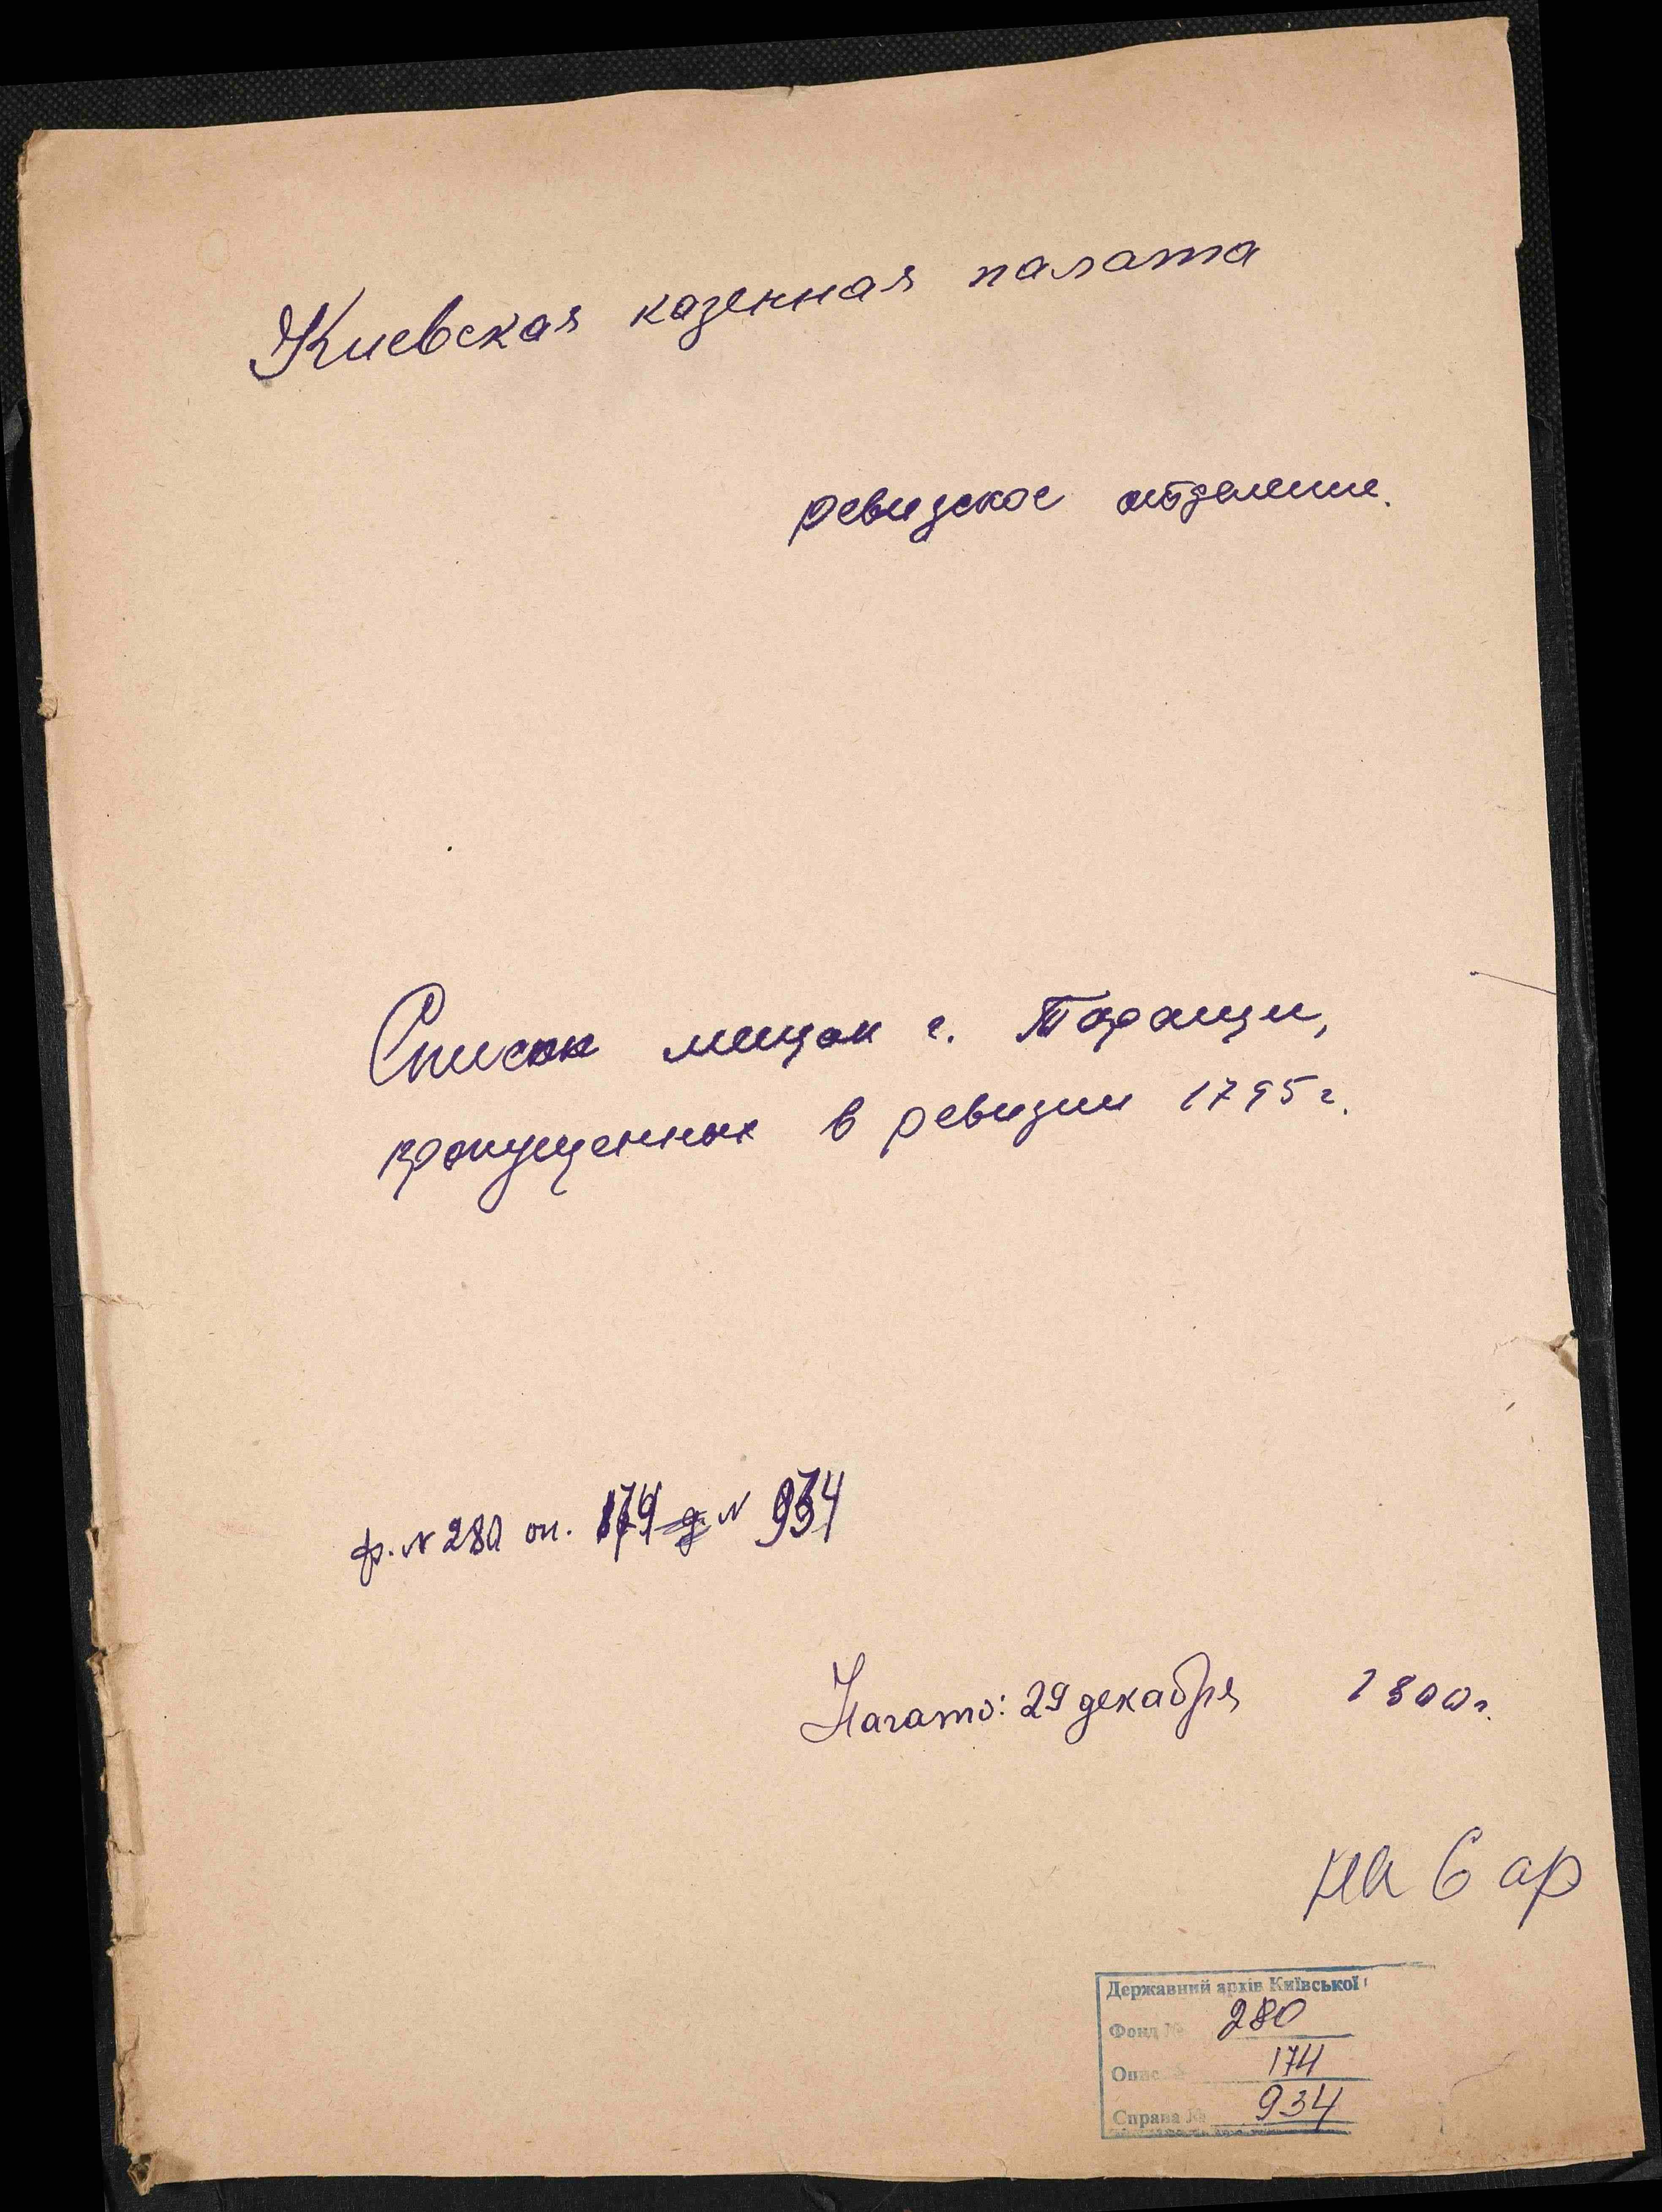 Киевская казенная палата
ревизское отделение.
Список мещан г. Таращи,
пропущенных в ревизии 1795 г.
ф. № 280 оп. 174 д. № 934
Начато: 29 декабря 1800 г.
на 6 ар
Державний архів Київської
Фонд № 280
Опис № 174
Справа № 934